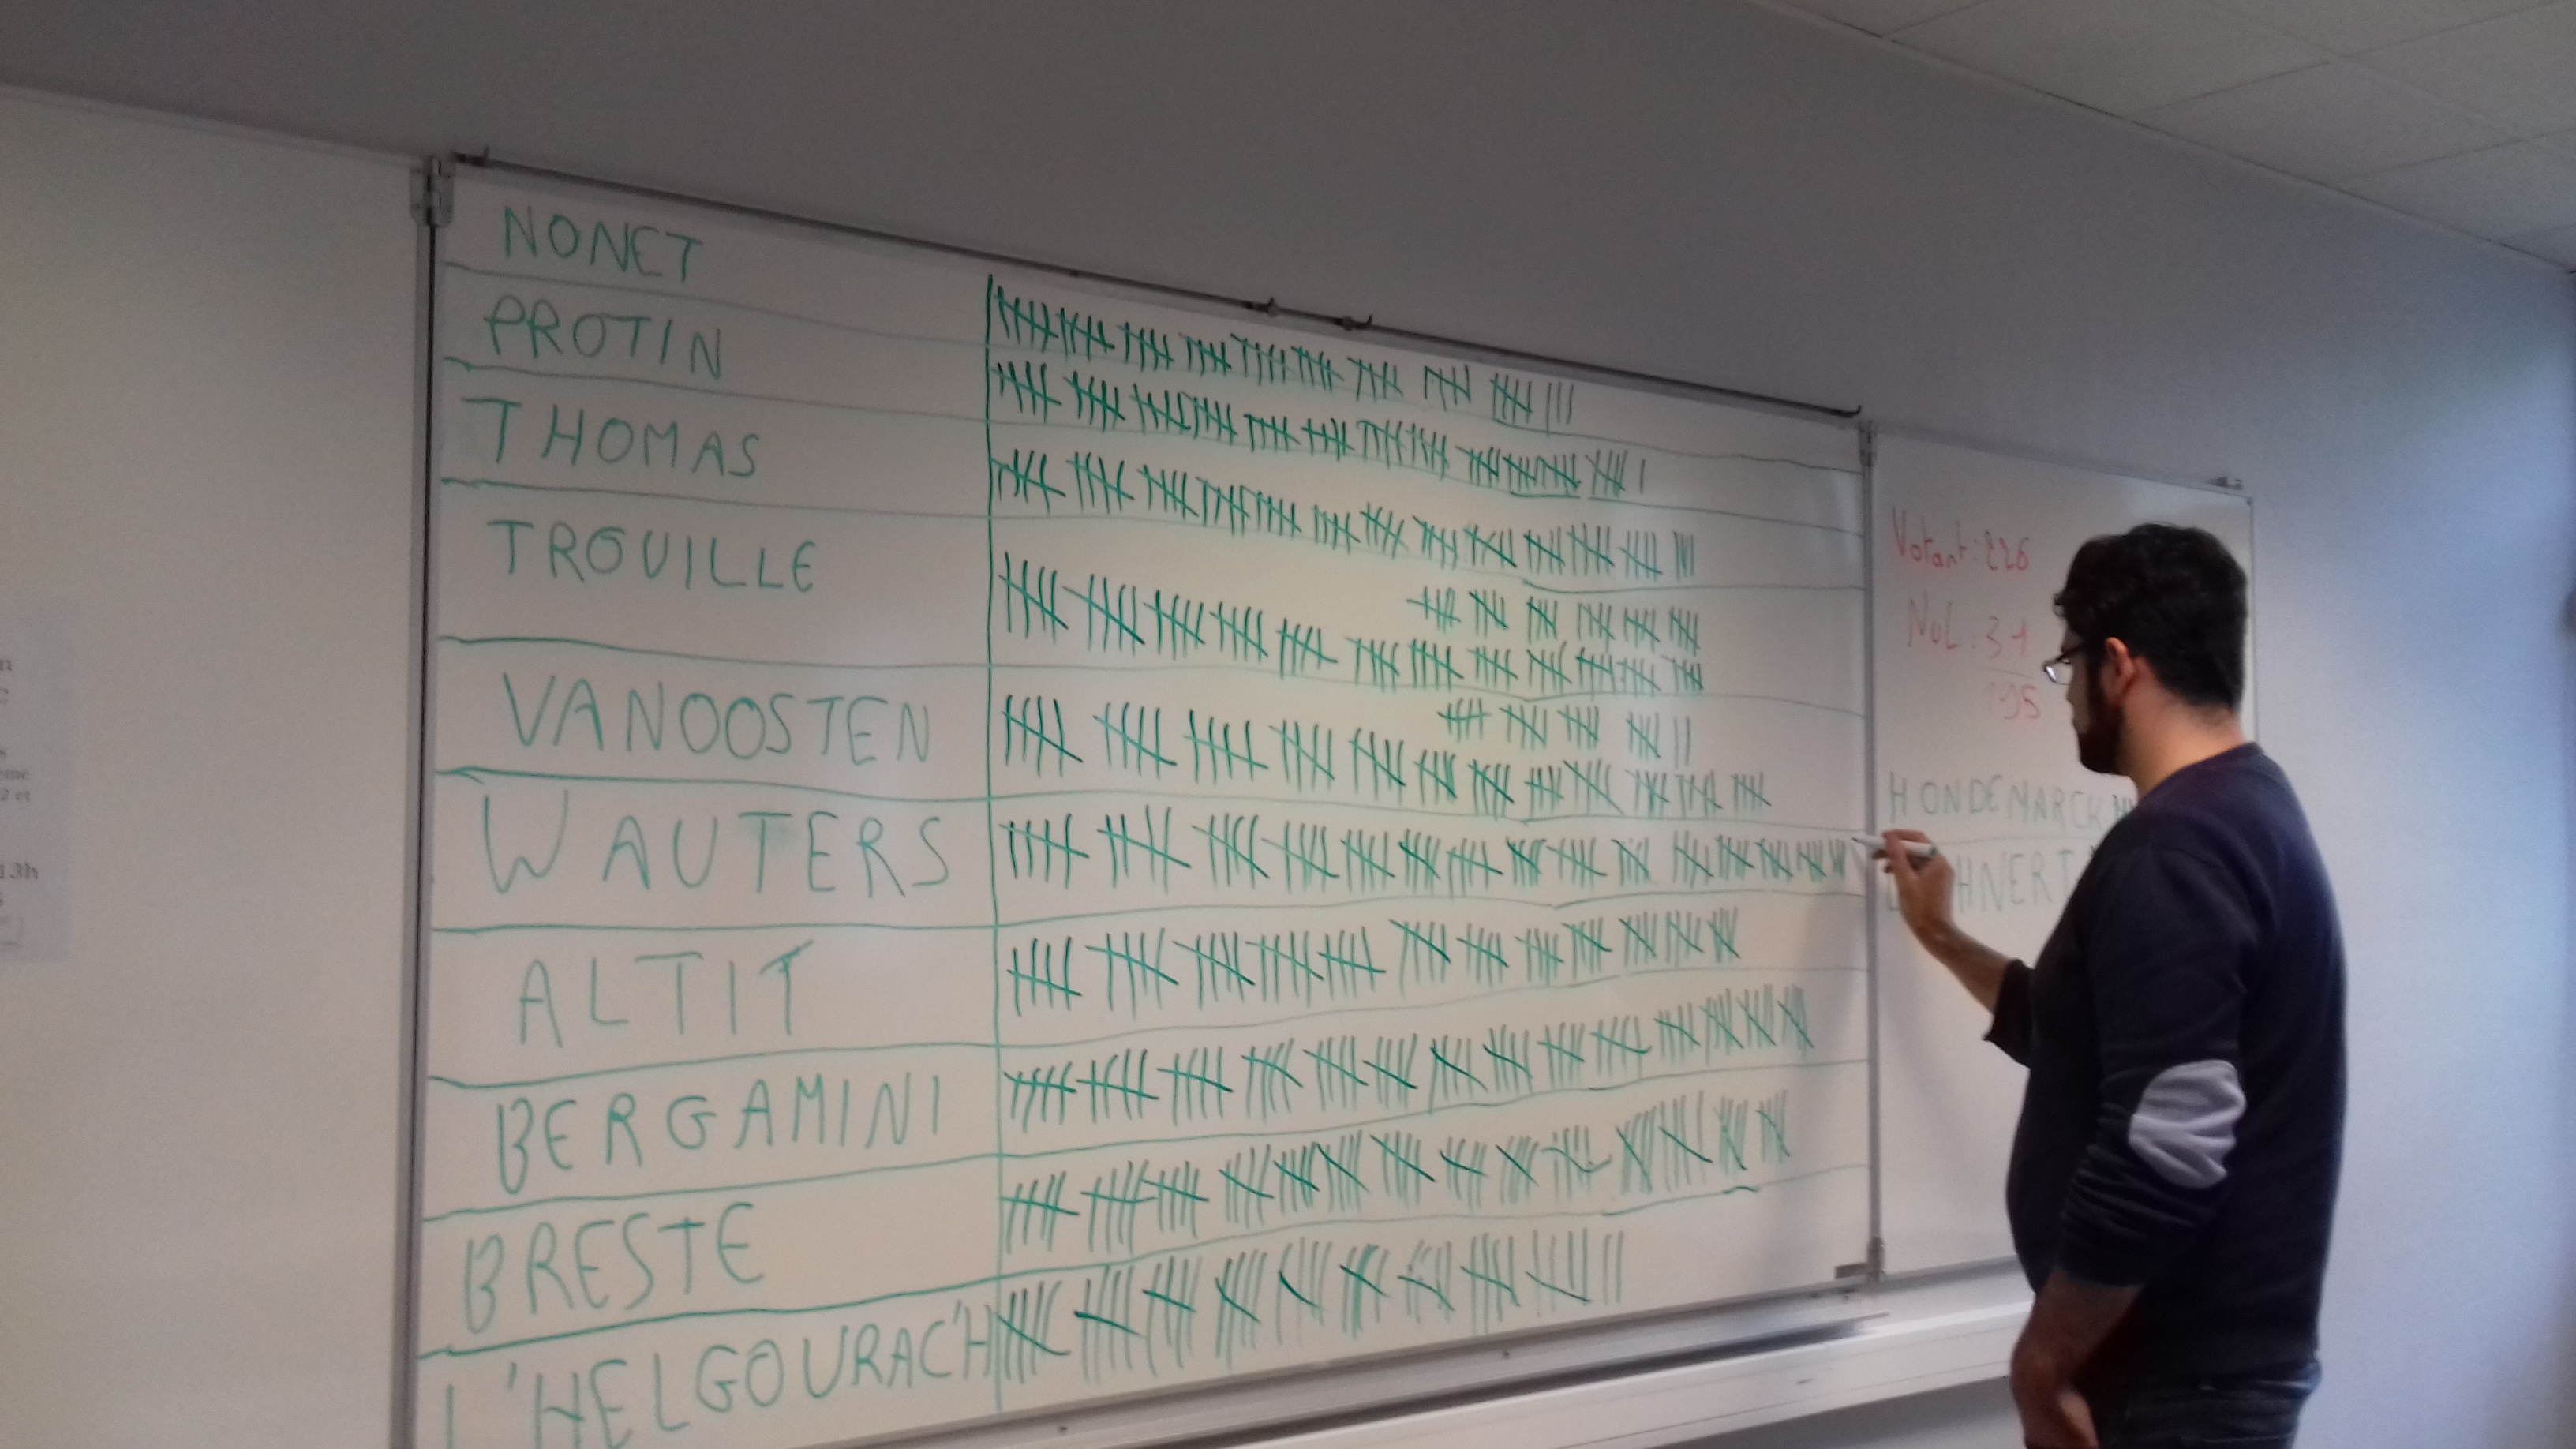 NONET
PROTIN
THOMAS
TROUILLE
VANOOSTEN
WAUTERS
ALTIT
BERGAMINI
BRESTE
L'HELGOURAC'H
Votant: 226
Nul: 31
195
HONDEMARCK
HNERT
13h